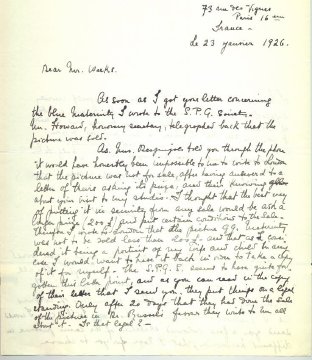 73 rue des Vignes
Paris 16 em
France -
le 23 janvier 1926.
Dear Mr. Weeks.
As soon as I got your letter concerning
the blue maternity I wrote to the S.P.G. Society.
Mr. Howard, honorary secretary, telegraphed back that the
picture was sold.
As Mrs. told you through the phone
it would have honestly been impossible to me to write to London
that the picture was not for sale, after having answered to a
letter of theirs asking its price, and their knowing
about your visit to my studio. I thought that the best way
of putting it in security from any sale would be ask a
and put certain conditions to the sale.
Therefore I wrote to London that the picture 99. maternity
was not to be sold less than 200 £. and that as I con-
sidered it being a portrait of my wife and child in any
case I would want to have it back in order to take a copy
of it for myself - The S.P.G.S. seems to have quite for-
gotten this latter point, and as you can read in the copy
of their letter that I send you, they put things on a legal
standing. Only after 20 days that they has done the sale
of the picture in Mr. favour they write to me all
about it - Is that legal? -